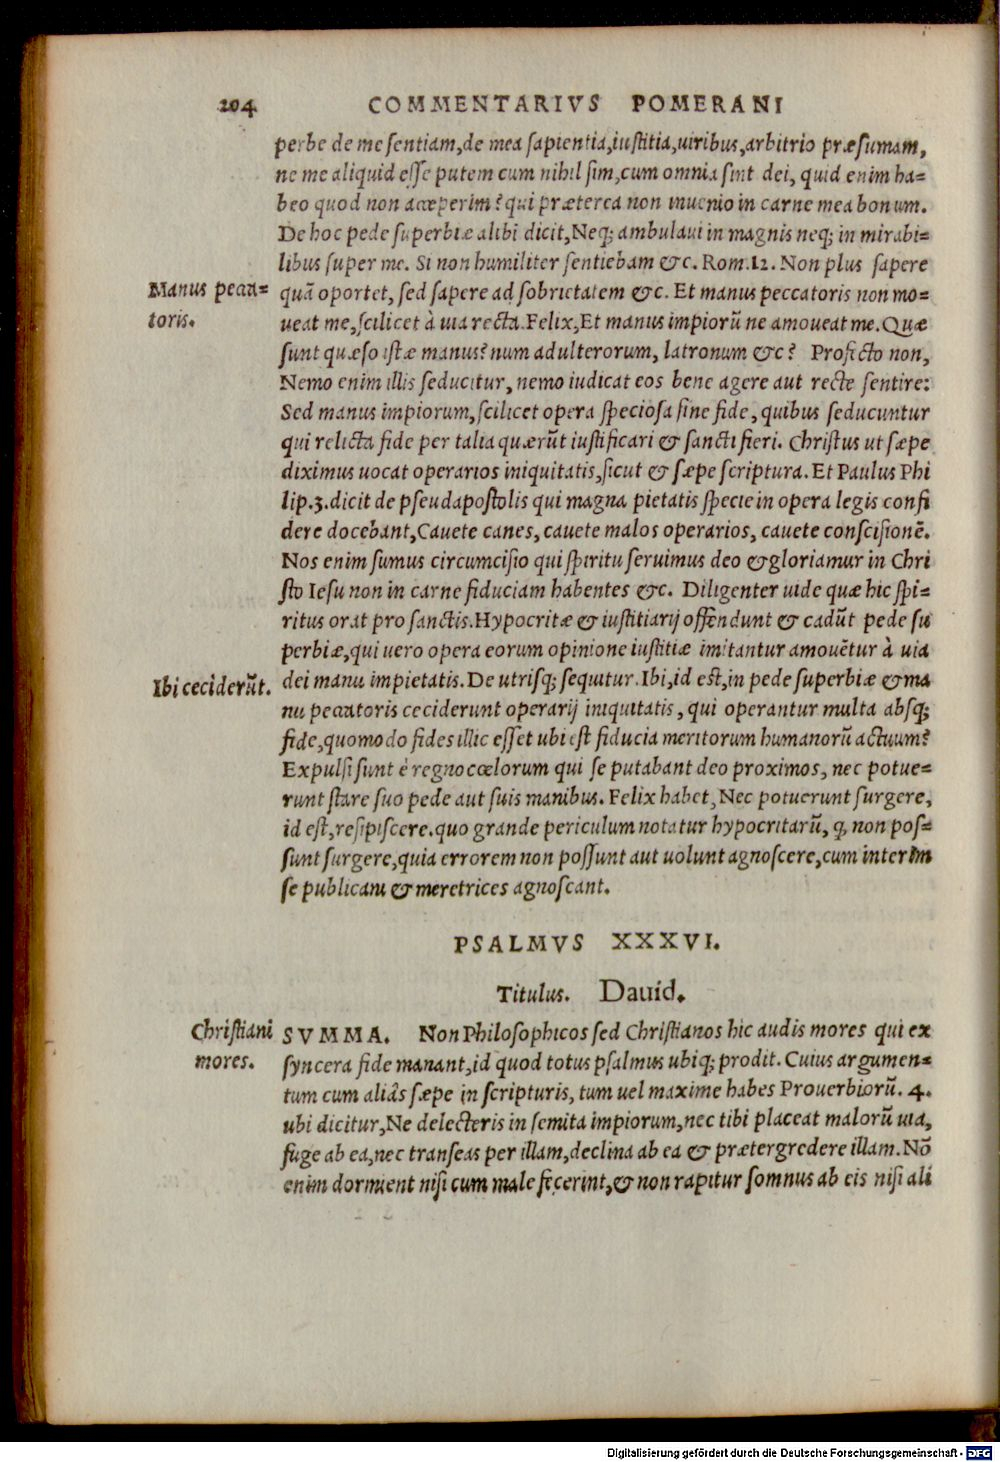 204 COMMENTARIVS POMERANI
perbe de me sentiam, de mea sapientia, iustitia, uiribus, arbitrio præsumam,
ne me aliquid esse putem cum nihil sim, cum omnia sint dei, quid enim ha=
beo quod non acceperim? qui præterea non inuenio in carne mea bonum.
De hoc pede superbiæ alibi dicit, Neq; ambulaui in magnis neq; in mirabi=
libus super me. Si non humiliter sentiebam &c. Rom.12. Non plus sapere
Manus pecca=
toris.
quā oportet, sed sapere ad sobrietatem &c. Et manus peccatoris non mo=
ueat me, scilicet à uia recta. Felix, Et manus impiorū ne amoueat me. Quæ
sunt quæso istæ manus? num adulterorum, latronum &c? Profecto non,
Nemo enim illis seducitur, nemo iudicat eos bene agere aut recte sentire:
Sed manus impiorum, scilicet opera speciosa sine fide, quibus seducuntur
qui relicta fide per talia quærūt iustificari & sancti fieri. Christus ut sæpe
diximus uocat operarios iniquitatis, sicut & sæpe scriptura. Et Paulus Phi
lip.3. dicit de pseudapostolis qui magna pietatis specie in opera legis confi
dere docebant, Cauete canes, cauete malos operarios, cauete conscisionē.
Nos enim sumus circumcisio qui spiritu seruimus deo & gloriamur in Chri
sto Iesu non in carne fiduciam habentes &c. Diligenter uide quæ hic spi=
ritus orat pro sanctis. Hypocritæ & iustitiarij offendunt & cadūt pede su
perbiæ, qui uero opera eorum opinione iustitiæ imitantur amouētur à uia
Ibi ceciderūt.
dei manu impietatis. De utrisq; sequitur. Ibi, id est, in pede superbiæ & ma
nu peccatoris ceciderunt operarij iniquitatis, qui operantur multa absq;
fide, quomodo fides illic esset ubi est fiducia meritorum humanorū actuum?
Expulsi sunt è regno cœlorum qui se putabant deo proximos, nec potue=
runt stare suo pede aut suis manibus. Felix habet, Nec potuerunt surgere,
id est, resipiscere. quo grande periculum notatur hypocritarū, q; non pos=
sunt surgere, quia errorem non possunt aut uolunt agnoscere, cum interim
se publicani & meretrices agnoscant.
PSALMVS XXXVI.
Titulus. Dauid.
Christiani
mores.
SVMMA. Non Philosophicos sed Christianos hic audis mores qui ex
syncera fide manant, id quod totus psalmus ubiq; prodit. Cuius argumen=
tum cum aliâs sæpe in scripturis, tum uel maxime habes Prouerbiorū. 4.
ubi dicitur, Ne delecteris in semita impiorum, nec tibi placeat malorū uia,
fuge ab ea, nec transeas per illam, declina ab ea & prætergredere illam. Nō
enim dormient nisi cum male fecerint, & non rapitur somnus ab eis nisi ali
Digitalisierung gefördert durch die Deutsche Forschungsgemeinschaft - DFG